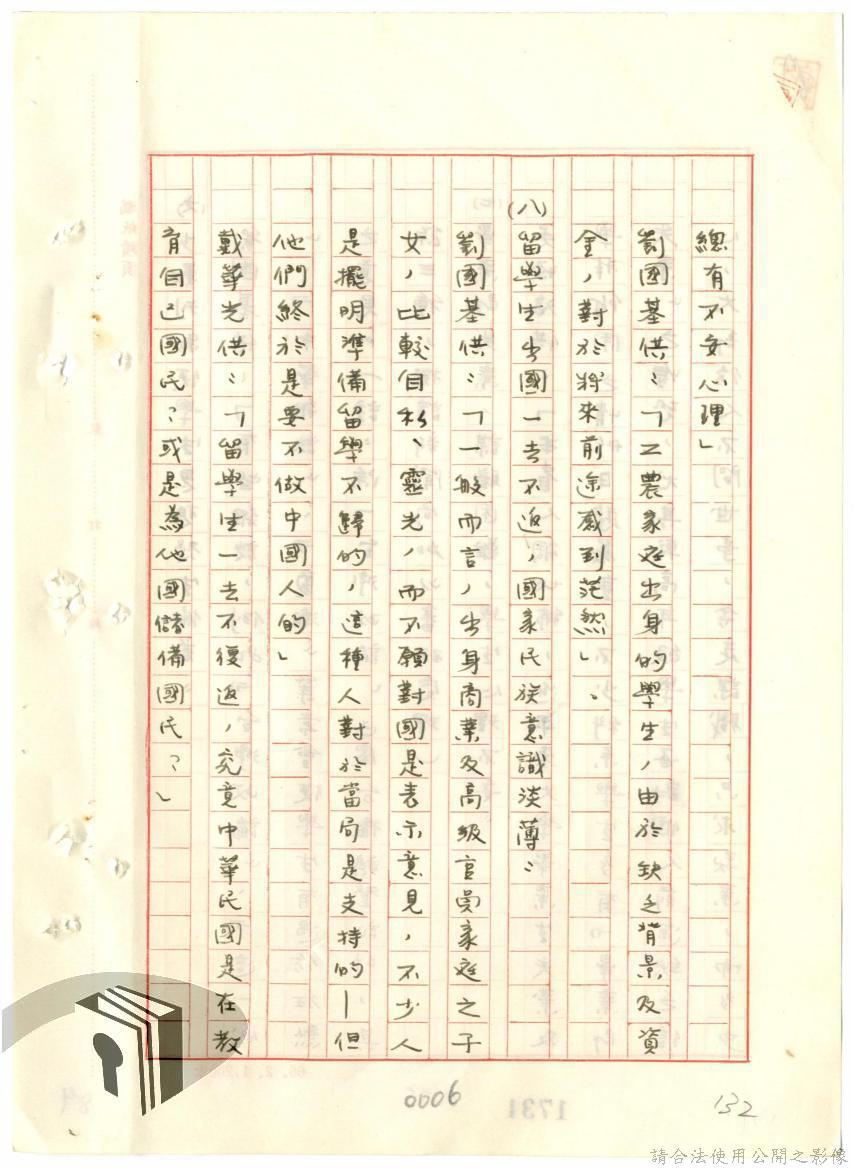 總有不安心理」
劉國基供：「工農家庭出身的學生，由於缺乏背景及資
金，對於將來前途感到茫然」。
(八)留學生出國一去不返，國家民族意識淡薄：
劉國基供：「一般而言，出身商業及高級官員家庭之子
女，比較自私、靈光，而不願對國是表示意見，不少人
是擺明準備留學不歸的，這種人對於當局是支持的—但
他們終於是要不做中國人的」
戴華光供：「留學生一去不復返，究竟中華民國是在教
育自己國民？或是為他國儲備國民？」
0006
1731
132
請合法使用公開之影像